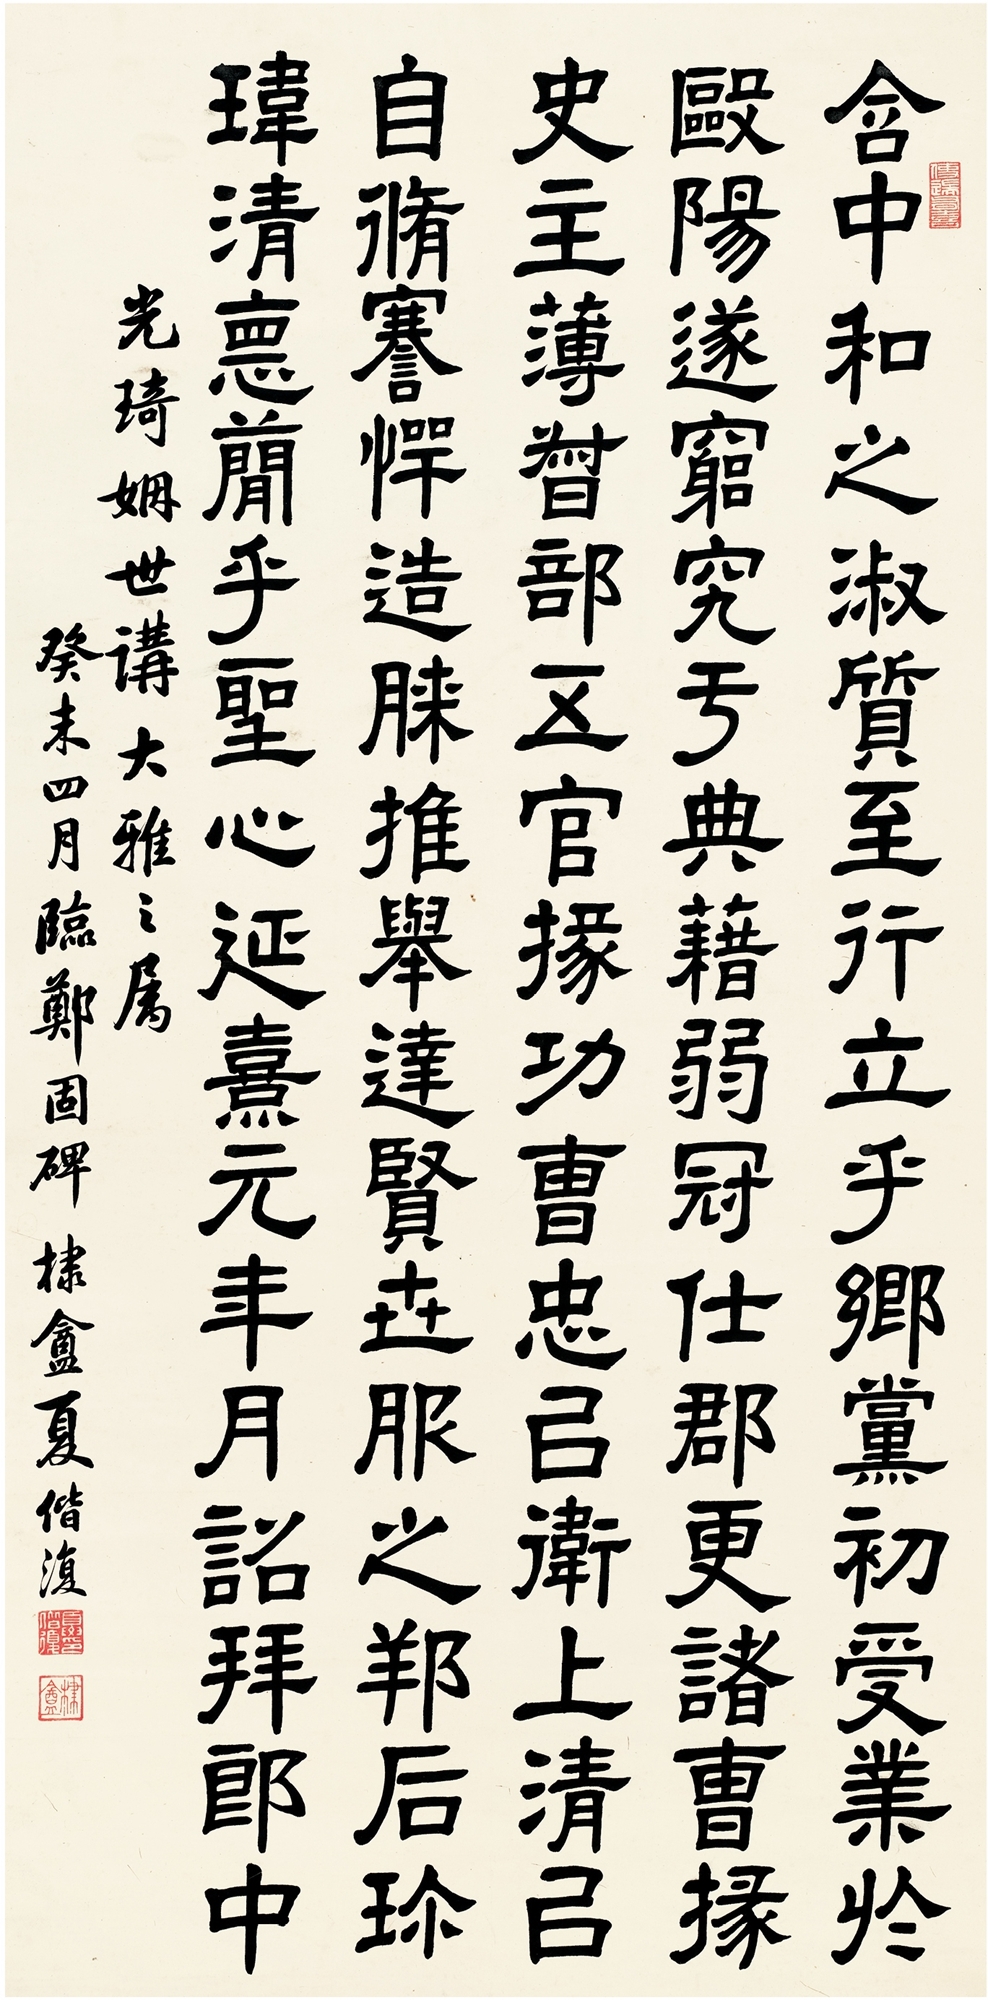 含中和之淑質至行立乎鄉黨初受業於
歐陽遂窮究于典藉弱冠仕郡更諸曹掾
史主薄督部五官掾功曹忠㠯衛上清㠯
自脩謇愕造膝推舉達賢世服之邦后珍
瑋清豈蕳乎聖心延熹元年月詔拜郎中
光琦姻世講大雅之属
癸未四月臨鄭固碑 棣盦夏偕復
夏偕復
棣盦